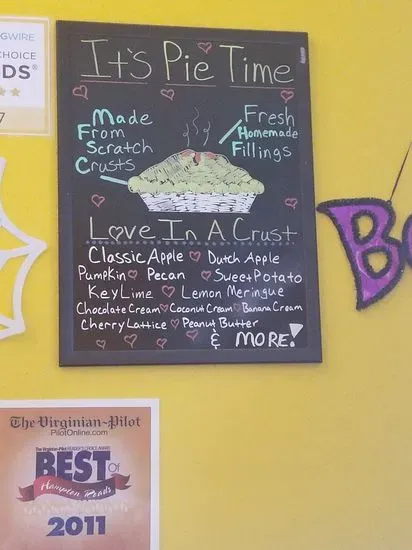 GWIRE
CHOICE
DS®
7
It's Pie Time
Made
From
Scratch
Crusts
Fresh
Homemade
Fillings
Love In A Crust
Classic Apple Dutch Apple
Pumpkin Pecan Sweet Potato
Key Lime Lemon Meringue
Chocolate Cream Coconut Cream Banana Cream
Cherry Lattice Peanut Butter
& MORE!
B
The Virginian-Pilot
PilotOnline.com
The Virginian-Pilot READER'S CHOICE AWARD
BEST Of
Hampton Roads
2011